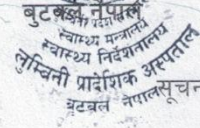 बुटवल, नेपाल
स्वास्थ्य मन्त्रालय
स्वास्थ्य निर्देशनालय
लुम्बिनी प्रादेशिक अस्पताल
बुटवल नेपाल
सूचन